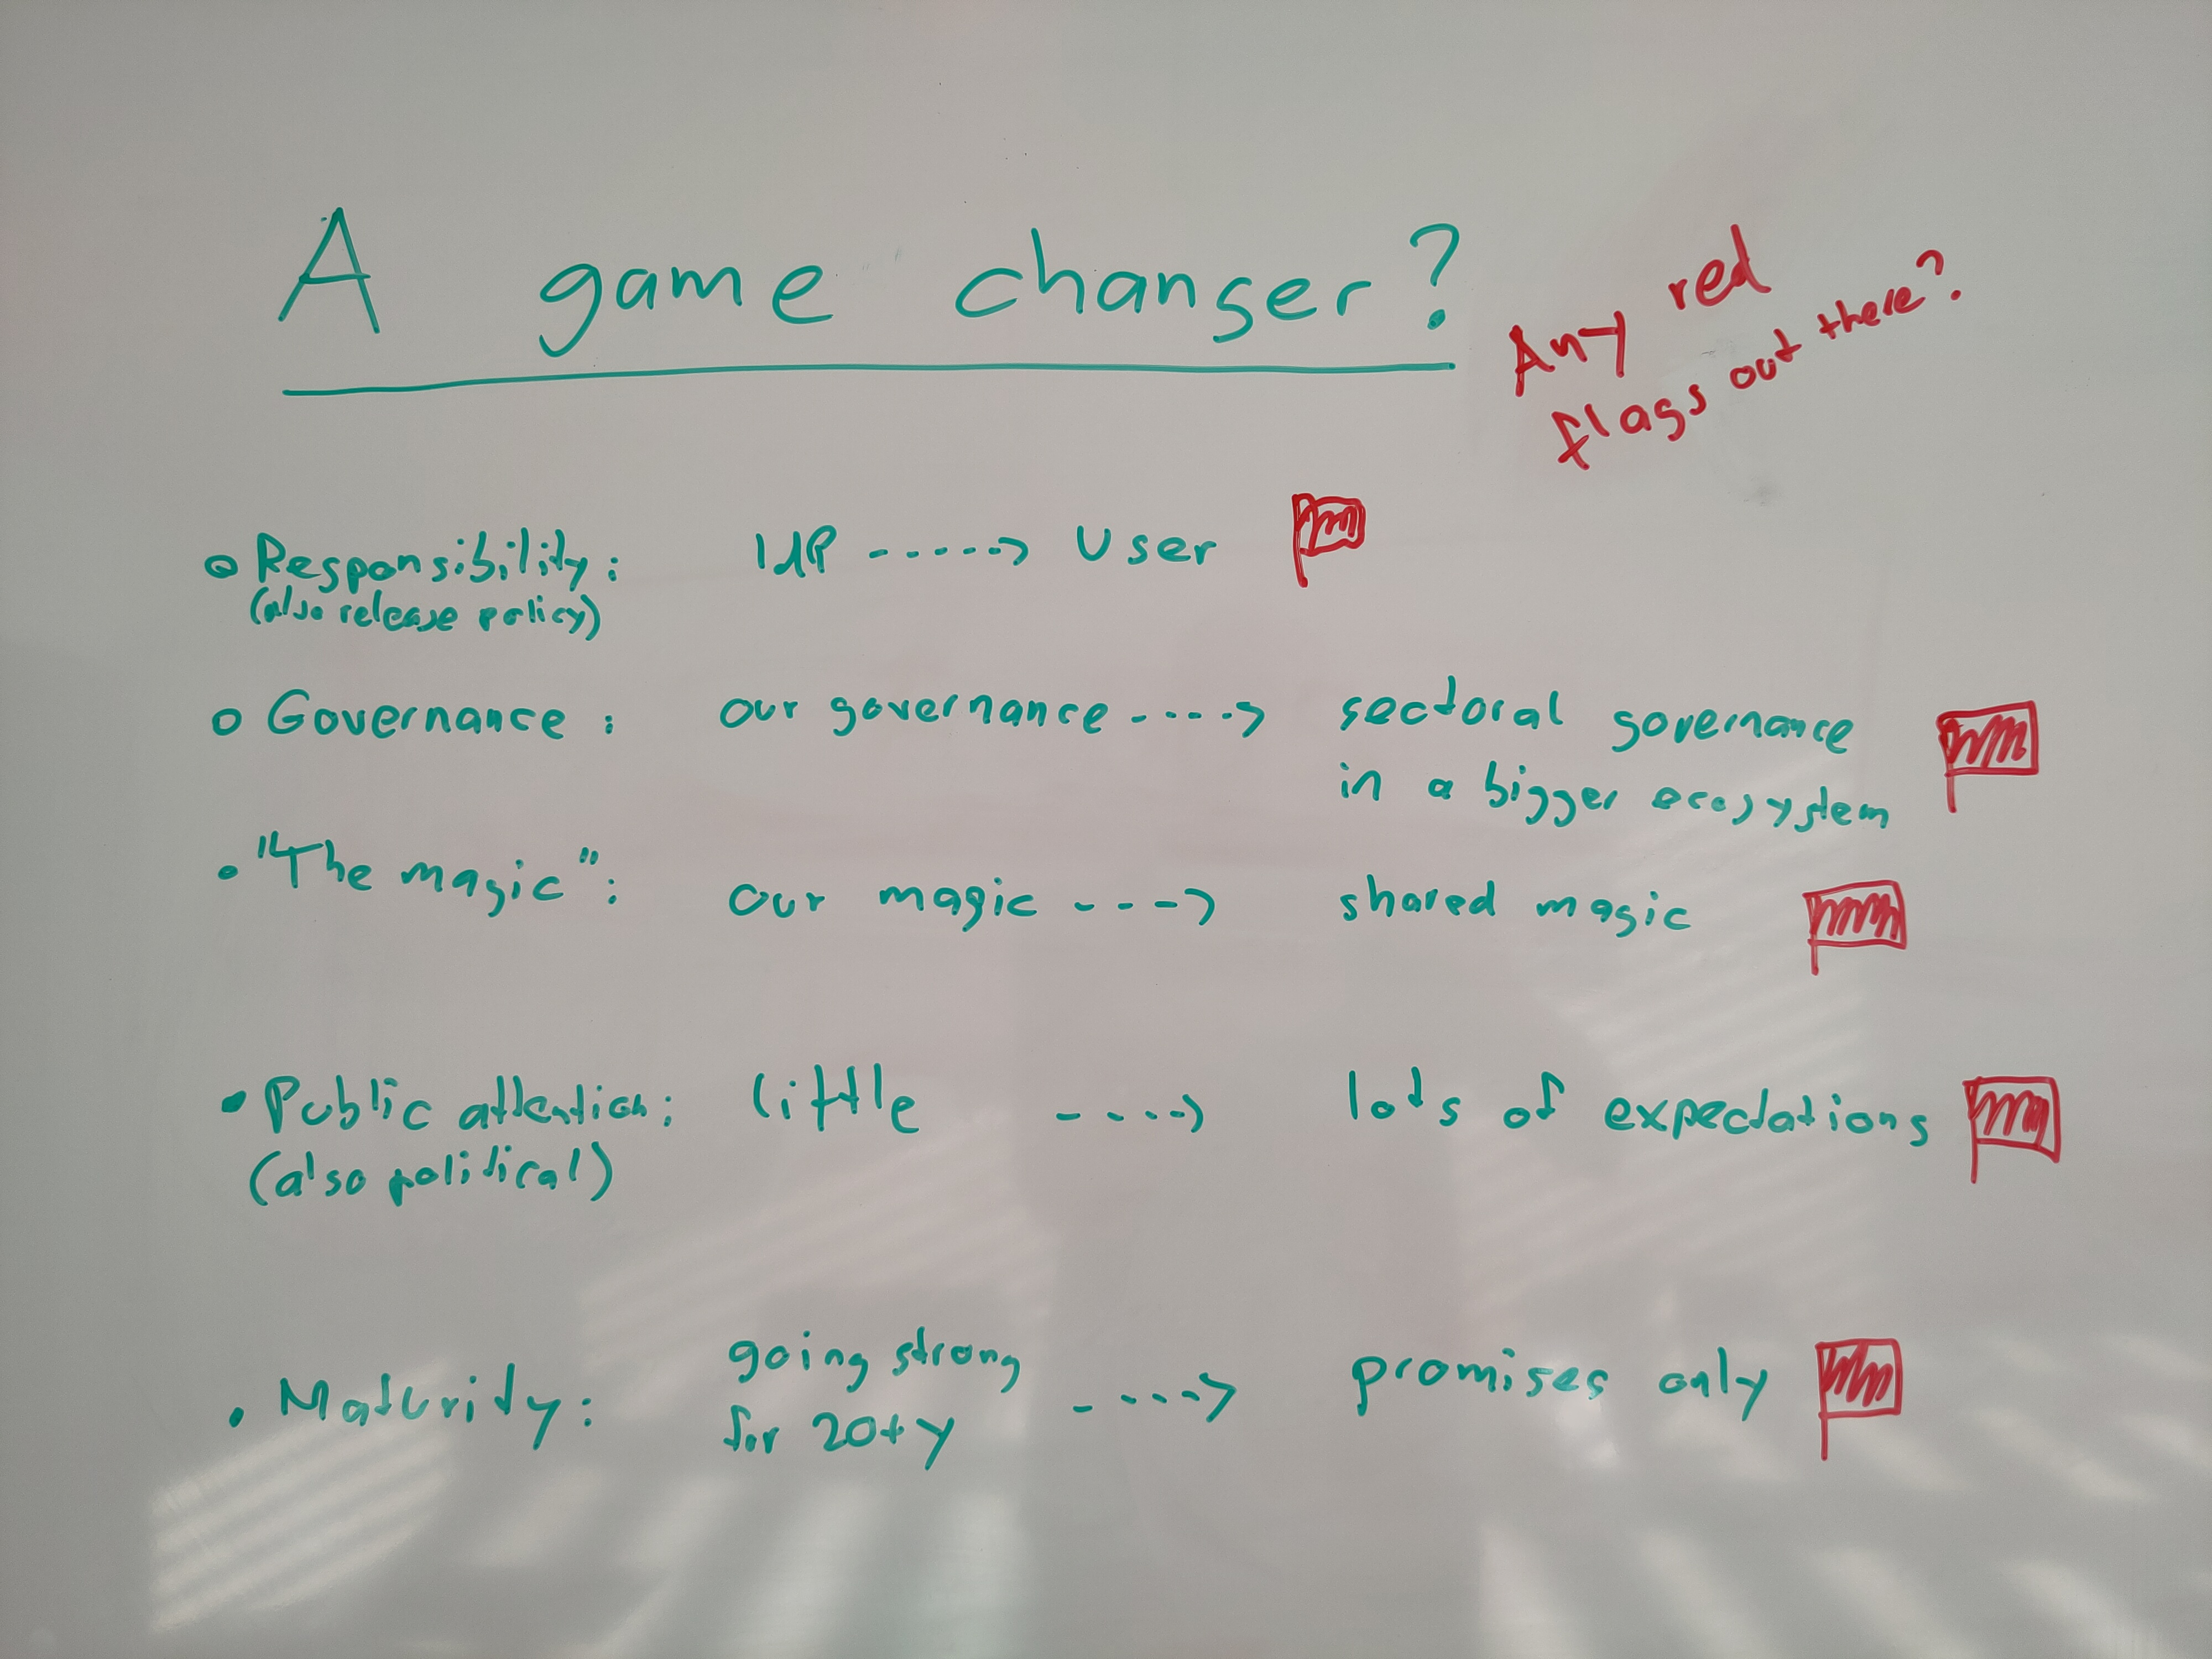 A game changer?
Any red
flags out there?
Responsibility: IdP -----> User
(also release policy)
Governance: our governance ----> sectoral governance
in a bigger ecosystem
"The magic": our magic ----> shared magic
Public attention: little ----> lots of expectations
(also political)
Maturity: going strong
for 20+y ----> promises only